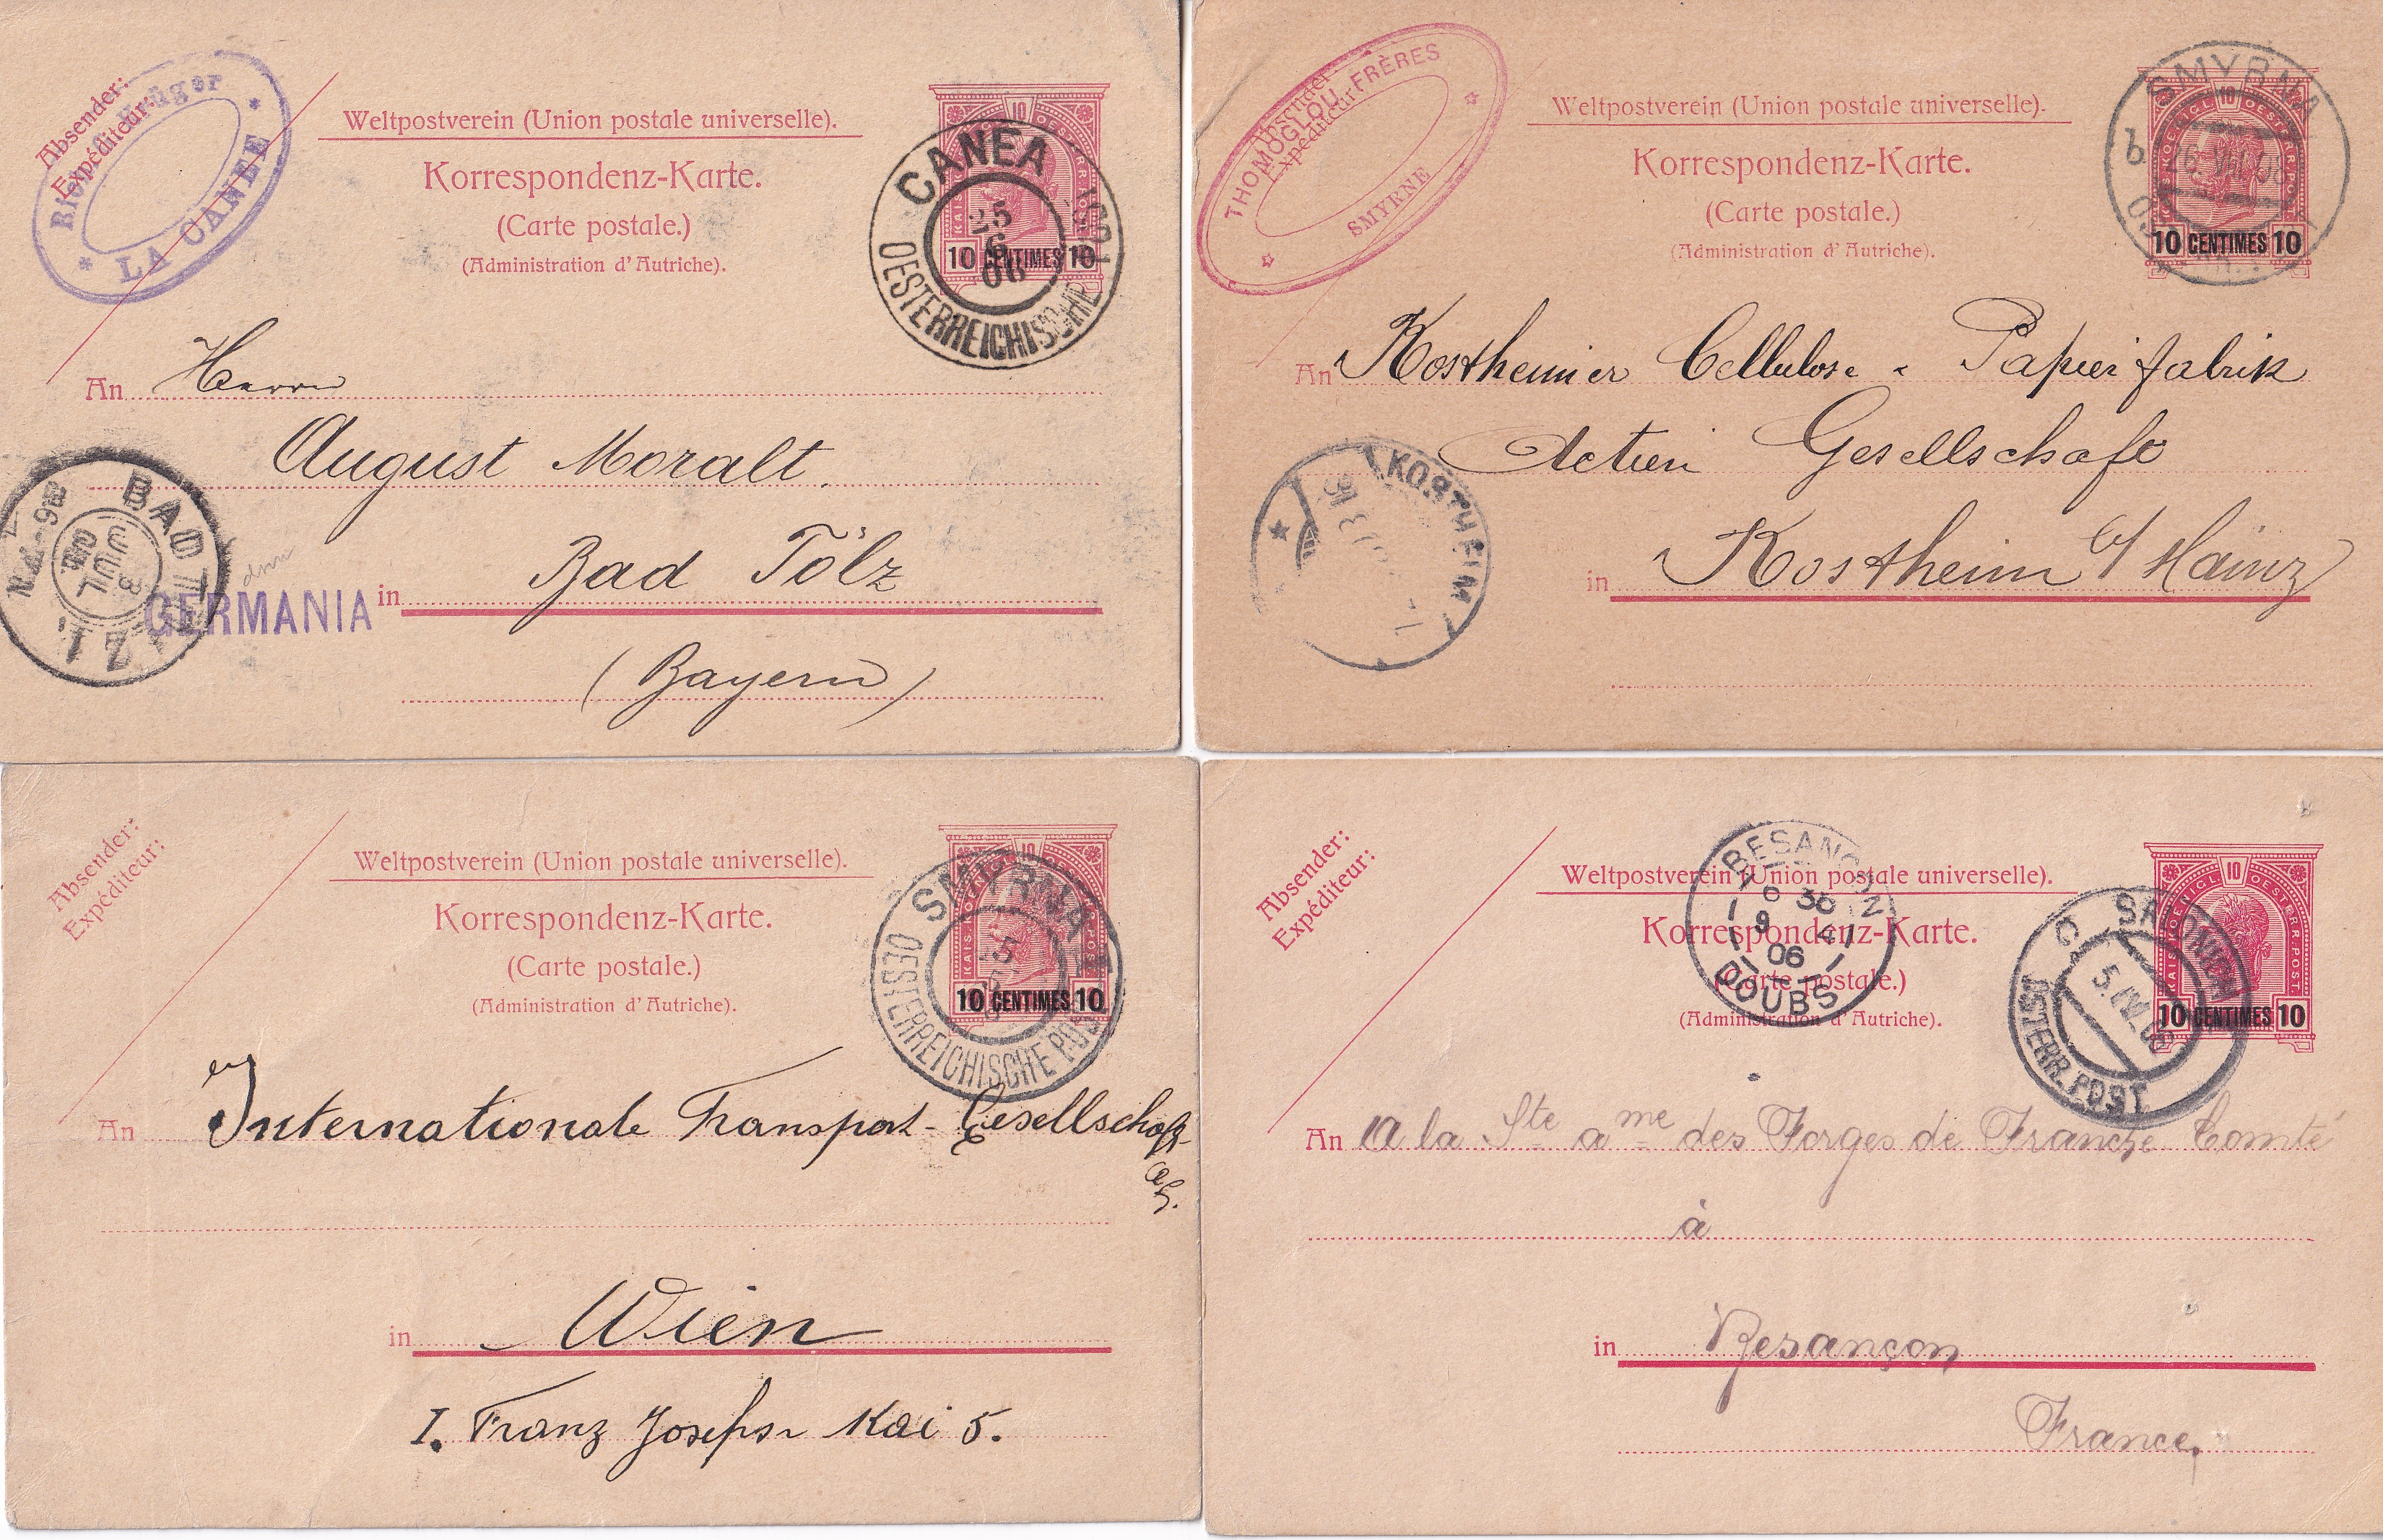 Absender:
Expéditeur:
Krüger
LA CANEE
Weltpostverein (Union postale universelle).
Korrespondenz-Karte.
(Carte postale.)
(Administration d'Autriche).
10
10 CENTIMES 10
CANEA
25
6
06
OESTERREICHISCHE
An Herrn
August Moralt.
in Bad Tölz
(Bayern)
BAD TÖLZ I.
3
JUL
GERMANIA
Absender
Expéditeur
THOMOGLOU FRÈRES
SMYRNE
Weltpostverein (Union postale universelle).
Korrespondenz-Karte.
(Carte postale.)
(Administration d'Autriche).
10
10 CENTIMES 10
SMYRNA
b
26. VII.
An Kostheimer Cellulose- Papierfabrik
Actien Gesellschaft
in Kostheim b/ Mainz
KOSTHEIM
Absender:
Expéditeur:
Weltpostverein (Union postale universelle).
Korrespondenz-Karte.
(Carte postale.)
(Administration d'Autriche).
10
10 CENTIMES 10
SMYRNA I
OESTERREICHISCHE POST
An Internationale Transport-Gesellschaft
AG.
in Wien
I. Franz Josefs Kai 5.
Absender:
Expéditeur:
Weltpostverein (Union postale universelle).
Korrespondenz-Karte.
(Carte postale.)
(Administration d'Autriche).
10
KAIS. KOENIGL. OESTERR. POST.
10 CENTIMES 10
BESANCON
6 30
9 4
06
DOUBS
C
5. IV. 06
ÖSTERR. POST.
An A la Ste ame des Forges de Franche Comté
à
in Besançon
France.